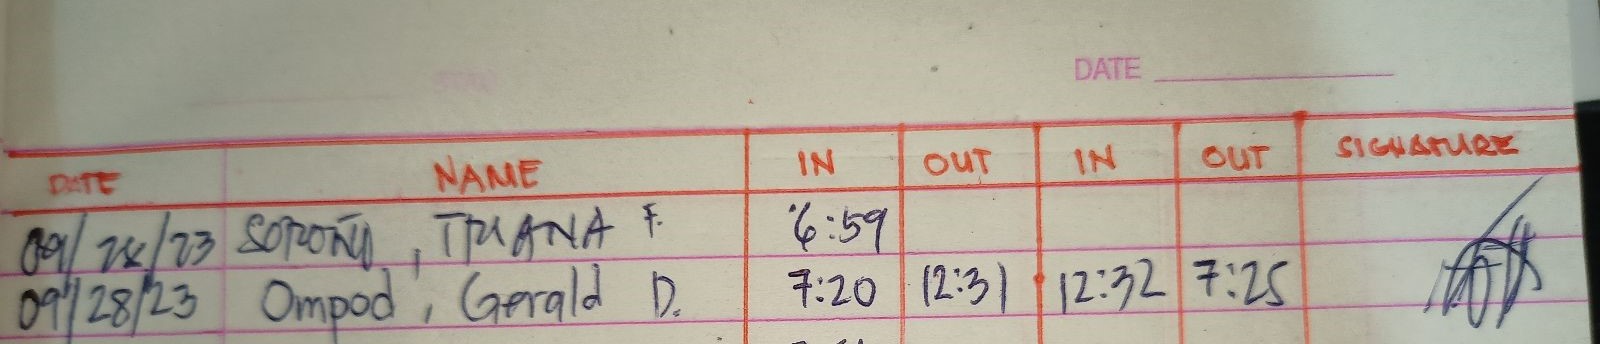 DATE
DATE NAME IN OUT IN OUT SIGNATURE
09/28/23 , TRIANA F. 6:59
09/28/23 Ompod, Gerald D. 7:20 12:31 12:32 7:25